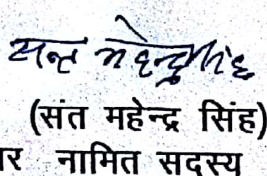 सन्त महेन्द्र सिंह
(संत महेन्द्र सिंह)
र नामित सदस्य